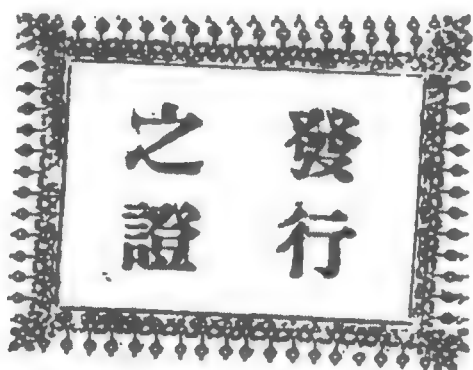 發行
之證